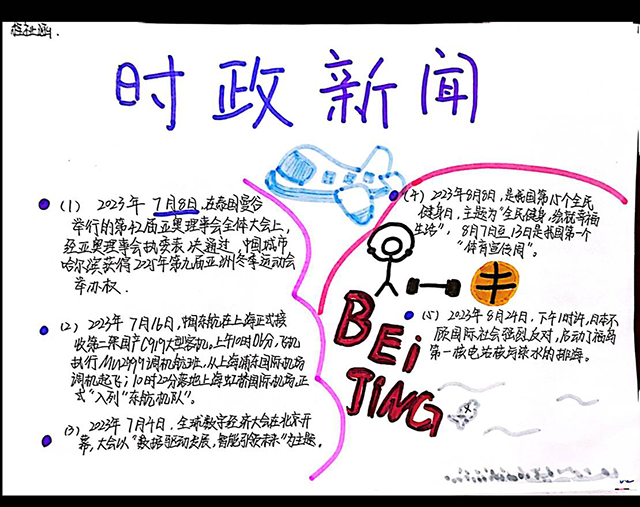 时政新闻
(1) 2023年 7月8日,在泰国曼谷
举行的第42届亚奥理事会全体大会上,
经亚奥理事会执委表决通过,中国城市
哈尔滨获得2025年第九届亚洲冬季运动会
举办权.
(2) 2023年7月16日,中国东航在上海正式接
收第二架国产C919大型客机,上午10时06分,飞机
执行MU2999调机航班,从上海浦东国际机场
调机起飞;10时22分落地上海虹桥国际机场,正
式“入列”东航机队”.
(3) 2023年7月4日,全球数字经济大会在北京开
幕,大会以“数据驱动发展,智能引领未来”为主题.
(4) 2023年8月8日,是我国第15个全民
健身日,主题为“全民健身,
生活”,8月7日至13日是我国第一个
“体育宣传周”.
(5) 2023年8月24日,下午1时许,日本不
顾国际社会强烈反对,启动了福岛
第一核电站核污染水的排海.
BEi
JiNG